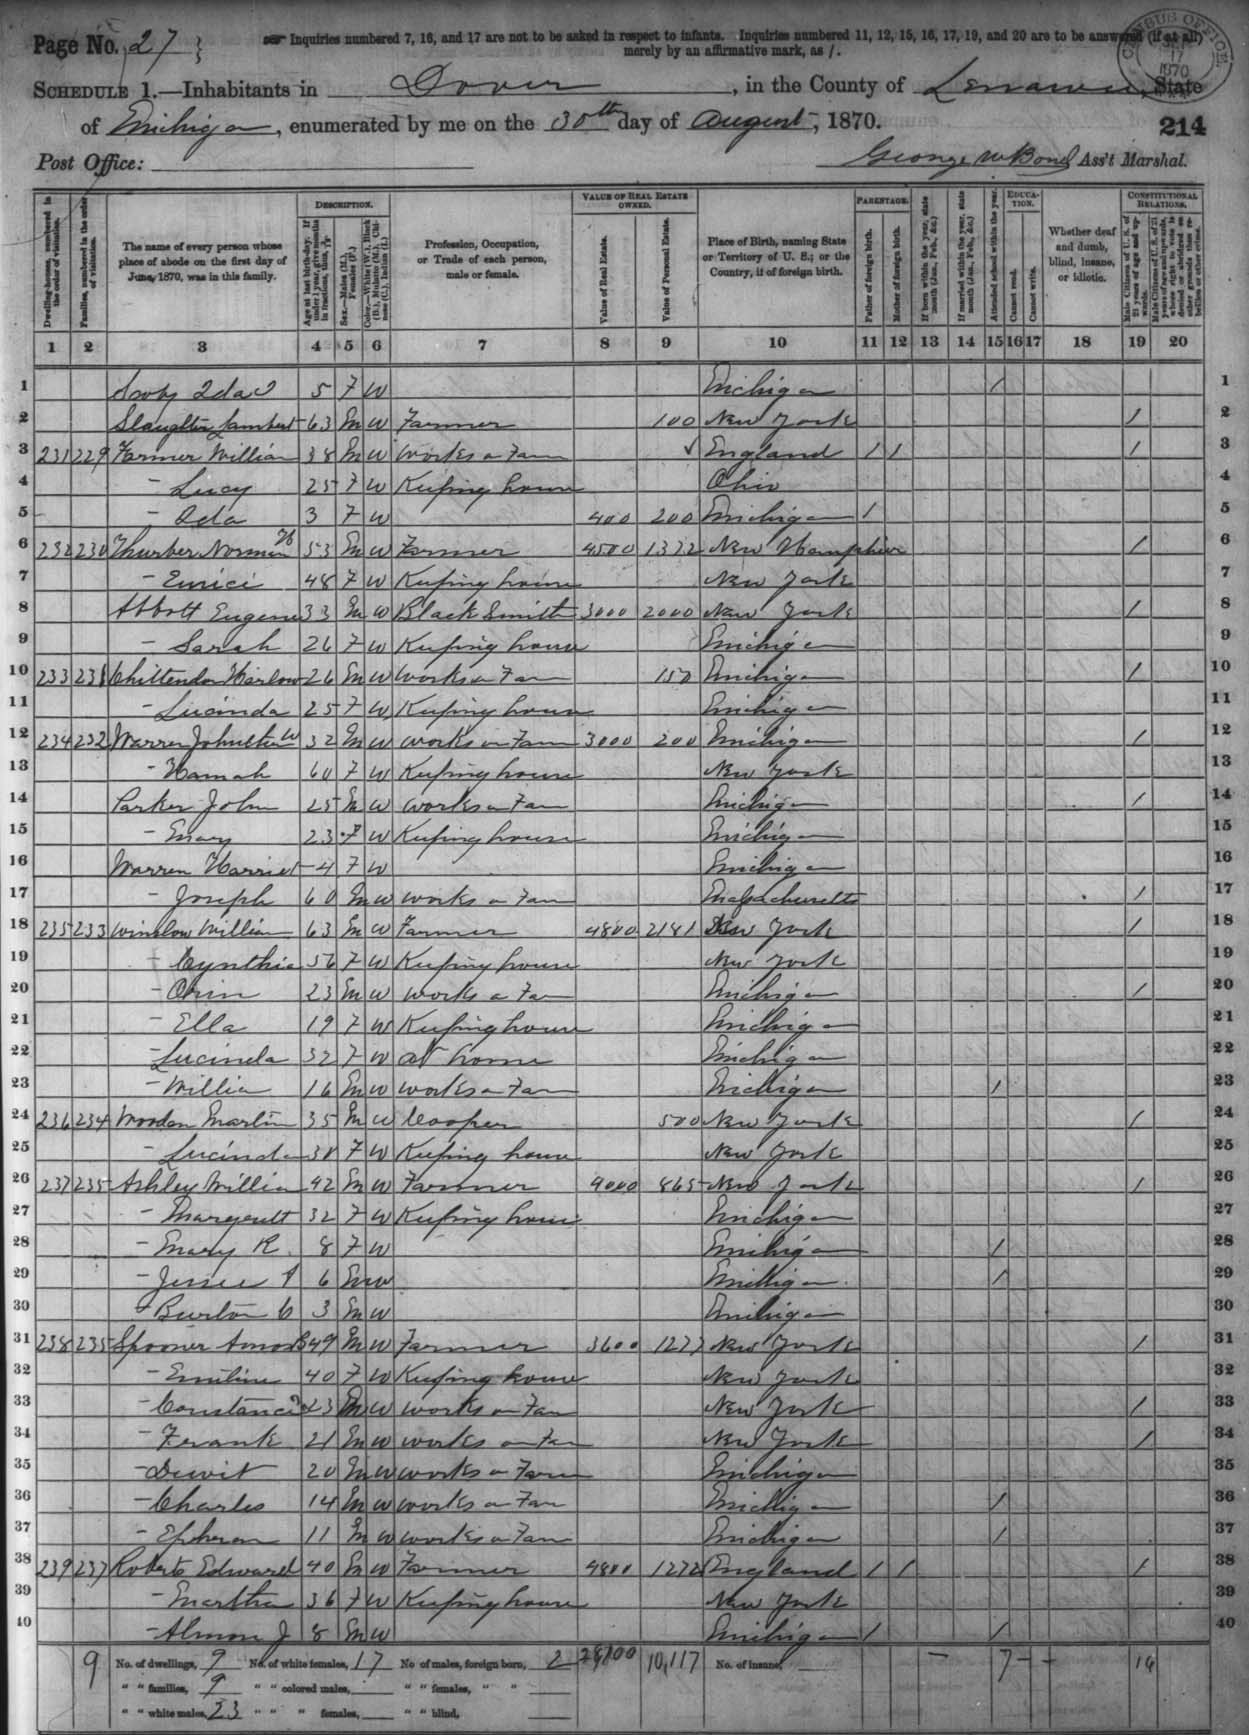 Page No. 27
Inquiries numbered 7, 16, and 17 are not to be asked in respect to infants. Inquiries numbered 11, 12, 15, 16, 17, 19, and 20 are to be answered (if at all)
merely by an affirmative mark, as /.
CENSUS OFFICE 17 1870
SCHEDULE 1.—Inhabitants in Dover, in the County of Lenawee, State
of Michigan, enumerated by me on the 30th day of August, 1870.
214
Post Office:
George W Bond Ass't Marshal.
Dwelling-houses, numbered in the order of visitation.
Families, numbered in the order of visitation.
The name of every person whose place of abode on the first day of June, 1870, was in this family.
DESCRIPTION.
Age at last birth-day. If under 1 year, give months in fractions, thus, 3/12
Sex.—Males (M.), Females (F.)
Color.—White (W.), Black (B.), Mulatto (M.), Chinese (C.), Indian (I.)
Profession, Occupation, or Trade of each person, male or female.
VALUE OF REAL ESTATE OWNED.
Value of Real Estate.
Value of Personal Estate.
Place of Birth, naming State or Territory of U. S.; or the Country, if of foreign birth.
PARENTAGE.
Father of foreign birth.
Mother of foreign birth.
If born within the year, state month (Jan., Feb., &c.)
If married within the year, state month (Jan., Feb., &c.)
Attended school within the year.
EDUCATION.
Cannot read.
Cannot write.
Whether deaf and dumb, blind, insane, or idiotic.
CONSTITUTIONAL RELATIONS.
Male Citizens of U. S. of 21 years of age and upwards.
Male Citizens of U. S. of 21 years of age and upwards, whose right to vote is denied or abridged on other grounds than rebellion or other crime.
1 2 3 4 5 6 7 8 9 10 11 12 13 14 15 16 17 18 19 20
1 Ida 5 F W Michigan / 1
2 Slaughter Lambert 63 M W Farmer 100 New York / 2
3 231 229 Farmer William 38 M W Works on Farm England / / / 3
4 - Lucy 25 F W Keeping house Ohio 4
5 - Ada 3 F W 400 200 Michigan / 5
6 232 230 Thurber Norman H 53 M W Farmer 4500 1372 New Hampshire / 6
7 - Eunici 48 F W Keeping house New York 7
8 Abbott Eugene 33 M W Black Smith 3000 2000 New York / 8
9 - Sarah 26 F W Keeping house Michigan 9
10 233 231 Chittendon Harlow 26 M W Works on Farm 150 Michigan / 10
11 - Lucinda 25 F W Keeping house Michigan 11
12 234 232 Warren W 32 M W Works on Farm 3000 200 Michigan / 12
13 - Hannah 60 F W Keeping house New York 13
14 Parker John 25 M W Works on Farm Michigan / 14
15 - Mary 23 F W Keeping house Michigan 15
16 Warren Harriet 4 F W Michigan 16
17 - Joseph 60 M W Works on Farm Massachusetts / 17
18 235 233 Winslow William 63 M W Farmer 4800 2181 New York / 18
19 - Cynthia 56 F W Keeping house New York 19
20 - Orin 23 M W Works on Farm Michigan / 20
21 - Ella 19 F W Keeping house Michigan 21
22 - Lucinda 32 F W at home Michigan 22
23 - Willia 16 M W Works on Farm Michigan / 23
24 236 234 Wooden Martin 35 M W Cooper 500 New York / 24
25 - Lucinda 30 F W Keeping house New York 25
26 237 235 Ashley William 42 M W Farmer 4000 865 New York / 26
27 - Margerett 32 F W Keeping house Michigan 27
28 - Mary R. 8 F W Michigan / 28
29 - Jessee 6 M W Michigan / 29
30 - Burton C 3 M W Michigan 30
31 238 235 Spooner Amos B 49 M W Farmer 3600 1277 New York / 31
32 - Emiline 40 F W Keeping house New York 32
33 - 23 M W Works on Farm New York / 33
34 - Frank 21 M W Works on Farm New York / 34
35 - Dewit 20 M W Works on Farm Michigan 35
36 - Charles 14 M W Works on Farm Michigan / 36
37 - Ephram 11 M W Works on Farm Michigan / 37
38 239 237 Roberts Edward 40 M W Farmer 4800 1272 England / / / 38
39 - Martha 36 F W Keeping house New York 39
40 - Almon J 8 M W Michigan / / 40
9 No. of dwellings, 9 No. of white females, 17 No of males, foreign born, 2 10,117 No. of insane, — 7 - - 16
" " families, 9 " " colored males, " " females, " "
" " white males, 23 " " " females, " " blind,